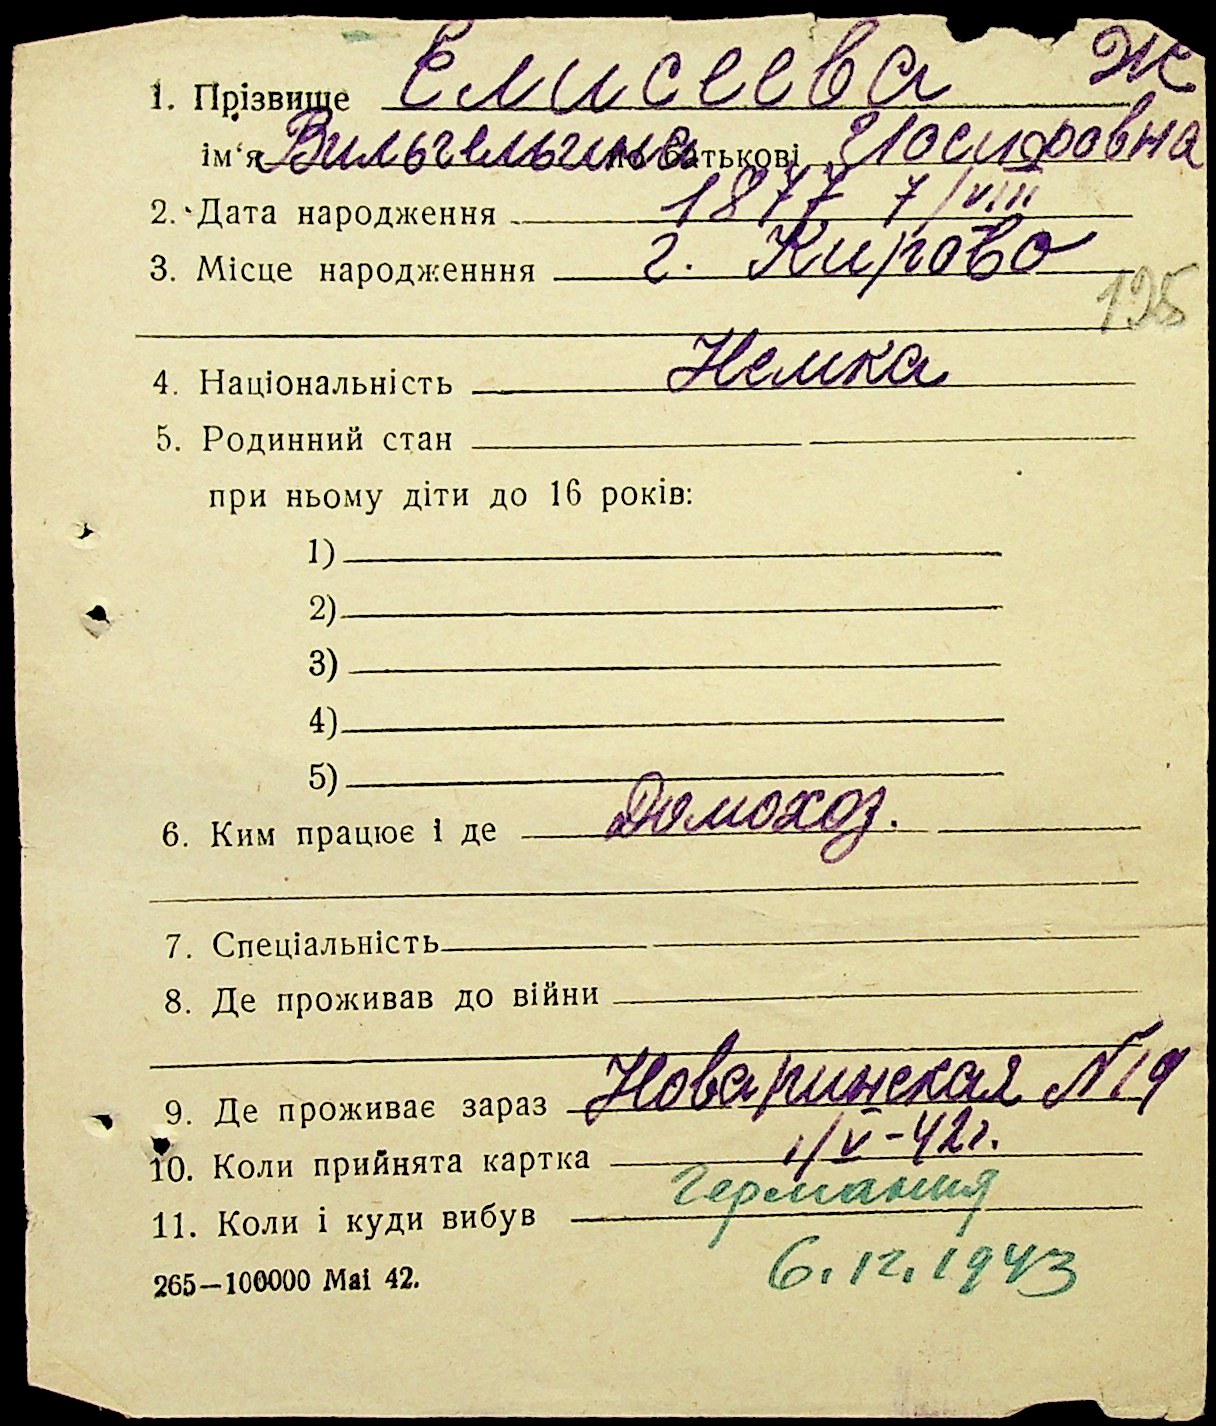 1. Прізвище Елисеева Ж
ім'я Вильгельмина по батькові Иосифовна
2. Дата народження 1877 7/VIII
3. Місце народженння г. Кирово
195
4. Національність Немка
5. Родинний стан
при ньому діти до 16 років:
1)
2)
3)
4)
5)
6. Ким працює і де Домохоз.
7. Спеціальність
8. Де проживав до війни
9. Де проживає зараз Новаринская №19
10. Коли прийнята картка 1/V-42г.
11. Коли і куди вибув Германия
6.12.1943
265—100000 Mai 42.